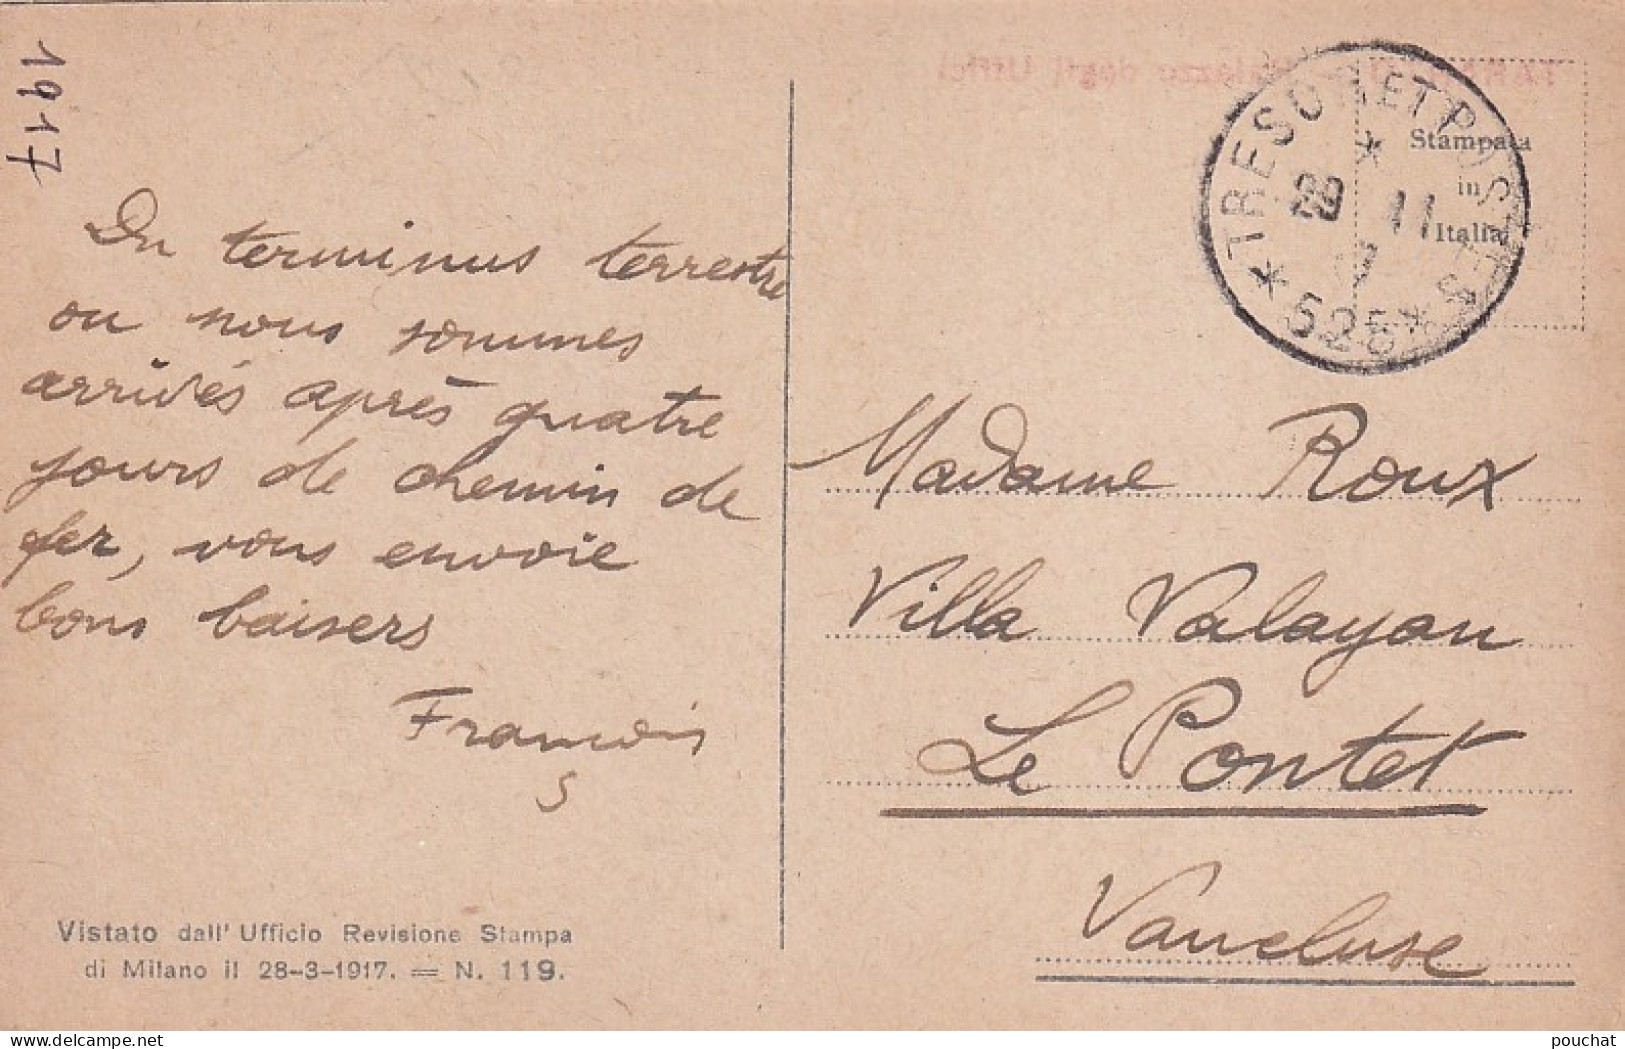 1917
Du terminus terrestre
ou nous sommes
arrivés après quatre
jours de chemin de
fer, vous envoie
bons baisers
François
Vistato dall' Ufficio Revisione Stampa
di Milano il 28-3-1917. = N. 119.
Palazzo degli Uffici
*TRESOR ET POSTES*
11
Stampata
in
Italia
Madame Roux
Villa Valayan
Le Pontet
Vaucluse
pouchat